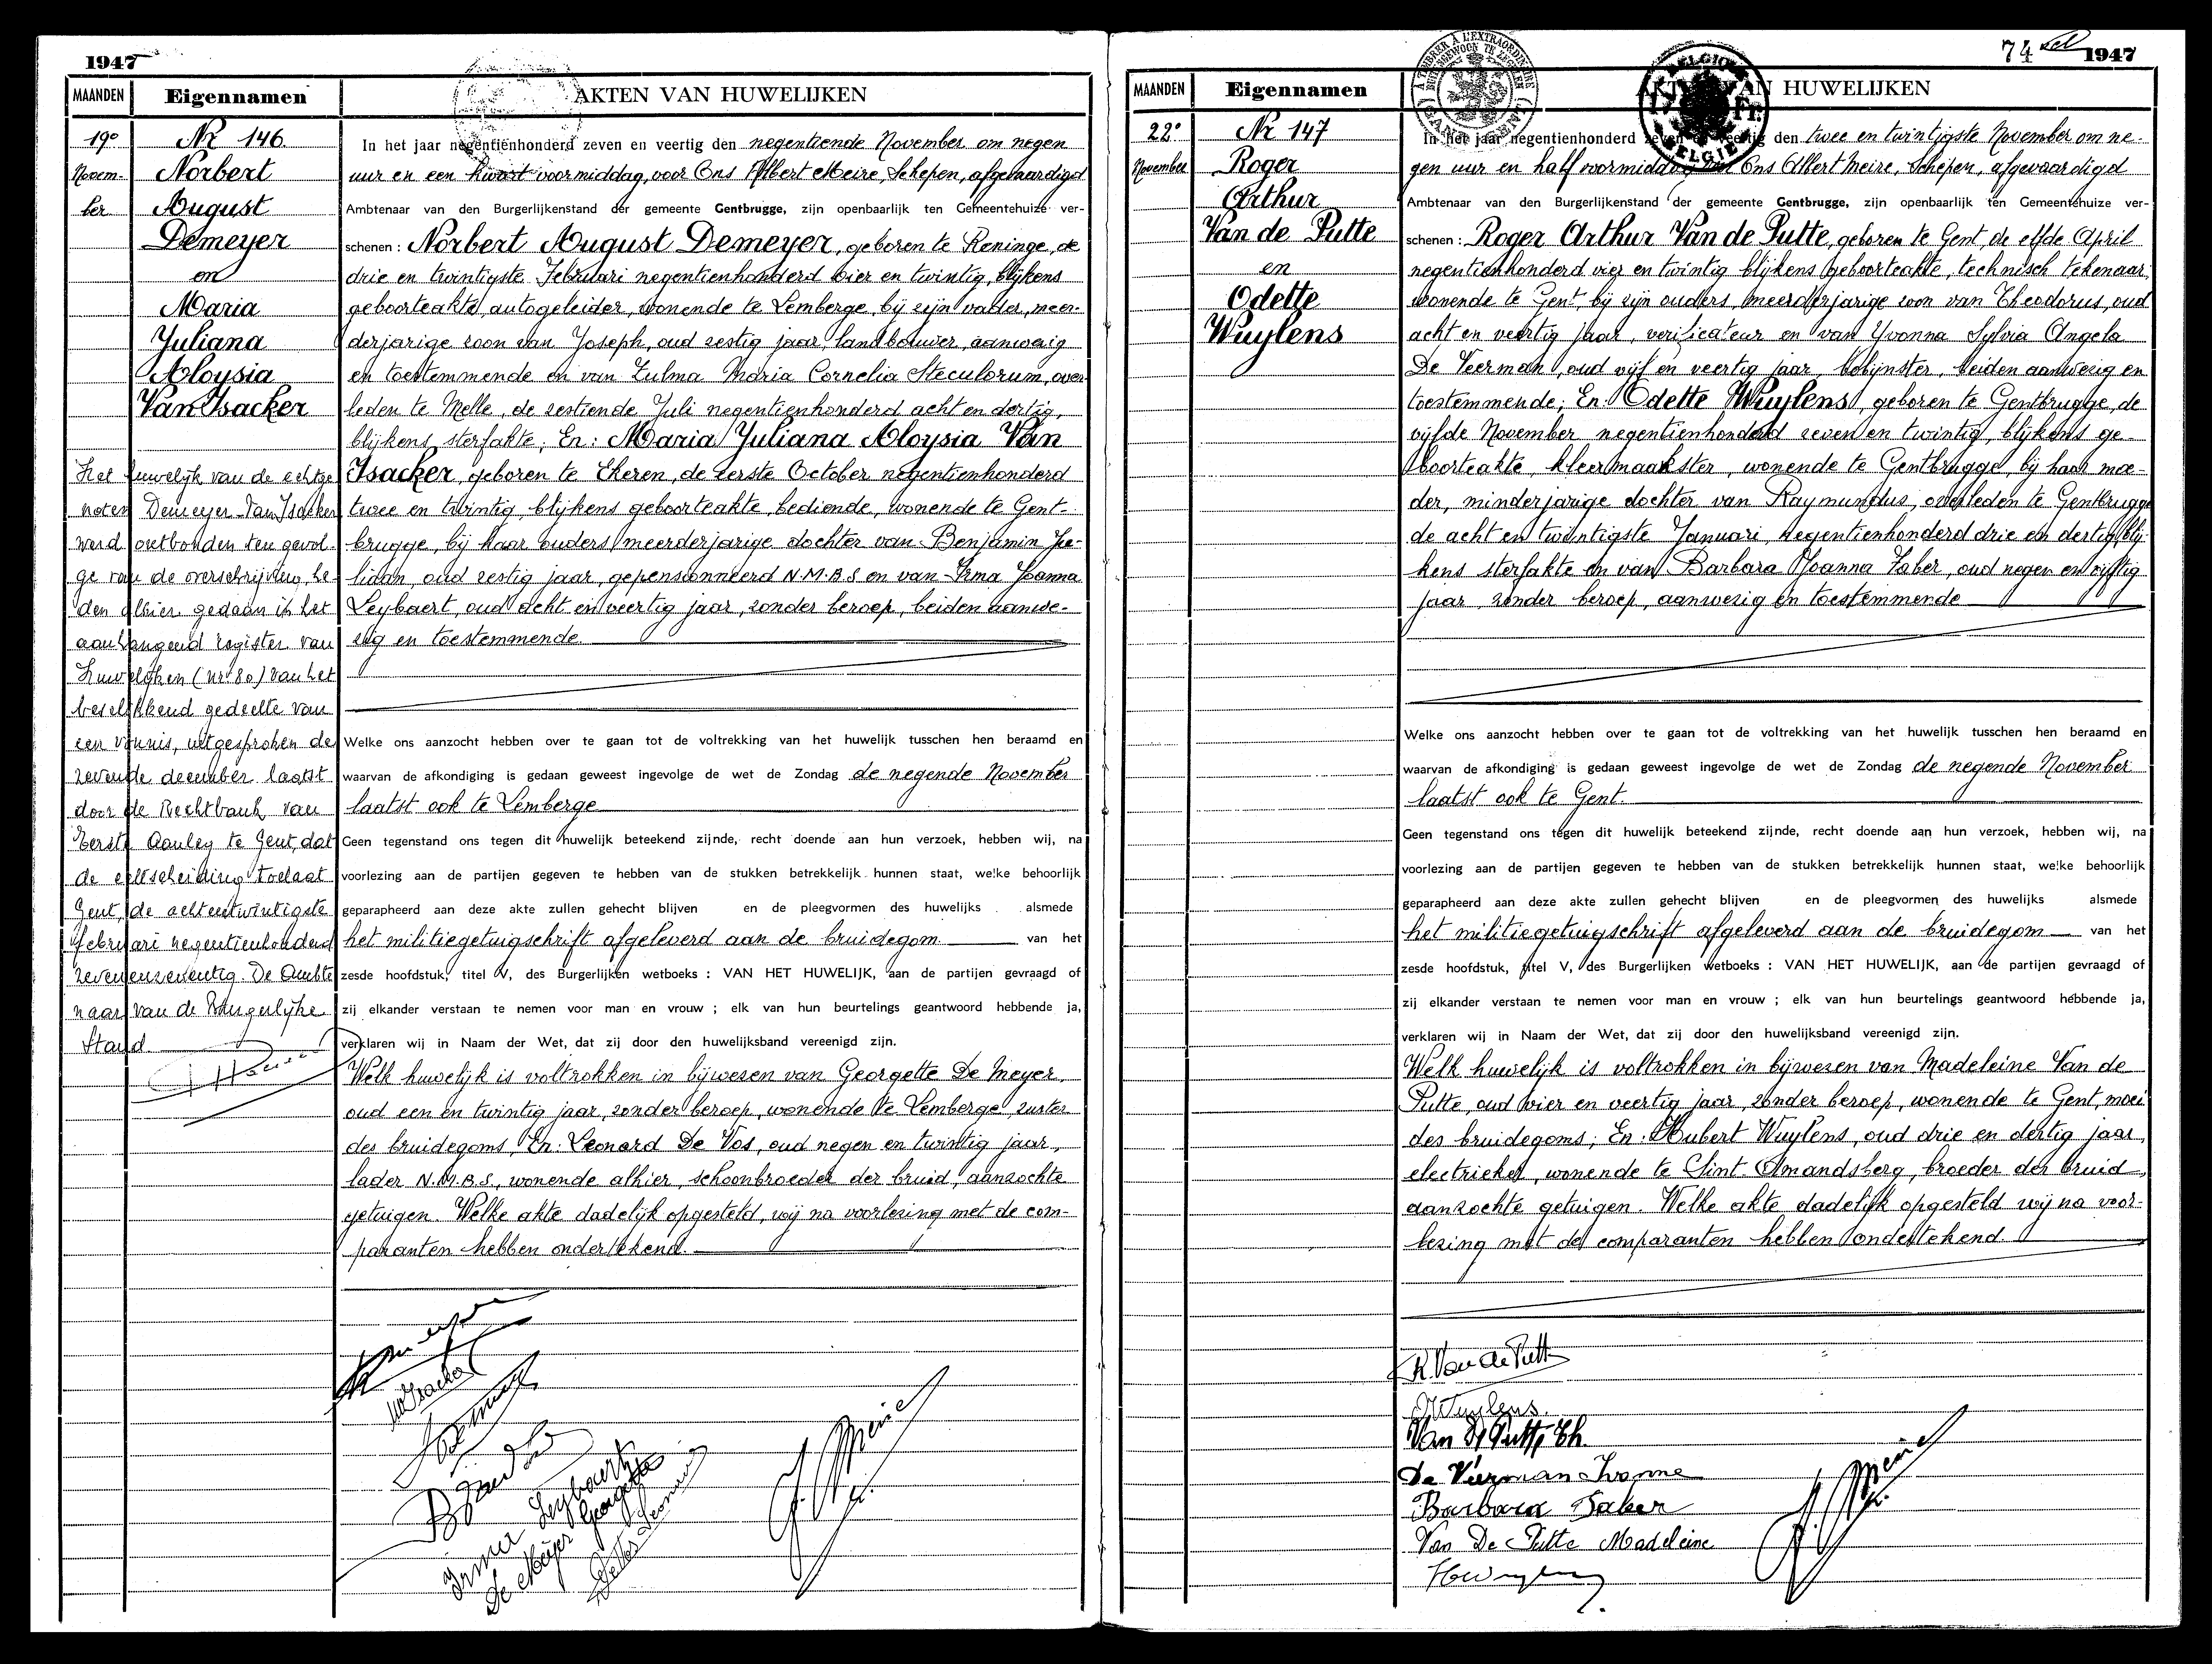 1947
MAANDEN
Eigennamen
AKTEN VAN HUWELIJKEN
19e
Novem-
ber
Nr 146
Norbert
August
Demeyer
en
Maria
Juliana
Aloysia
Van Isacker
Het huwelijk van de echtge
noten Demeyer-Van Isacker
werd ontbonden ten gevol-
ge van de overschrijving, he-
den alhier gedaan in het
aanhangend register van
Huwelijken (nr 80) van het
beschikkend gedeelte van
een vonnis, uitgesproken de
zevende december laatst
door de Rechtbank van
Eerste Aanleg te Gent, dat
de echtscheiding toelaat
Gent, de achtentwintigste
februari negentienhonderd
zevenenzeventig. De Ambte
naar van de Burgerlijke
Stand.
In het jaar negentienhonderd zeven en veertig den negentiende November om negen
uur en een kwart voormiddag, voor Ons Albert Meire, Schepen, afgevaardigd
Ambtenaar van den Burgerlijkenstand der gemeente Gentbrugge, zijn openbaarlijk ten Gemeentehuize ver-
schenen : Norbert August Demeyer, geboren te Reninge, de
drie en twintigste Februari negentienhonderd vier en twintig, blijkens
geboorteakte, autogeleider, wonende te Lemberge, bij zijn vader, meer-
derjarige zoon van Joseph, oud zestig jaar, landbouwer, aanwezig
en toestemmende en van Zulma Maria Cornelia Steculorum, over-
leden te Melle, de zestiende Juli negentienhonderd acht en dertig,
blijkens sterfakte; En: Maria Juliana Aloysia Van
Isacker, geboren te Ekeren, de eerste October negentienhonderd
twee en twintig, blijkens geboorteakte, bediende, wonende te Gent-
brugge, bij haar ouders, meerderjarige dochter van Benjamin Ju-
liaan, oud zestig jaar, gepensionneerd N.M.B.S en van Irma Joanna
Leybaert, oud acht en veertig jaar, zonder beroep, beiden aanwe-
zig en toestemmende.
Welke ons aanzocht hebben over te gaan tot de voltrekking van het huwelijk tusschen hen beraamd en
waarvan de afkondiging is gedaan geweest ingevolge de wet de Zondag de negende November
laatst ook te Lemberge
Geen tegenstand ons tegen dit huwelijk beteekend zijnde, recht doende aan hun verzoek, hebben wij, na
voorlezing aan de partijen gegeven te hebben van de stukken betrekkelijk hunnen staat, welke behoorlijk
geparapheerd aan deze akte zullen gehecht blijven en de pleegvormen des huwelijks alsmede
het militiegetuigschrift afgeleverd aan de bruidegom van het
zesde hoofdstuk, titel V, des Burgerlijken wetboeks : VAN HET HUWELIJK, aan de partijen gevraagd of
zij elkander verstaan te nemen voor man en vrouw ; elk van hun beurtelings geantwoord hebbende ja,
verklaren wij in Naam der Wet, dat zij door den huwelijksband vereenigd zijn.
Welk huwelijk is voltrokken in bijwezen van Georgette De Meyer,
oud een en twintig jaar, zonder beroep, wonende te Lemberge, zuster
des bruidegoms, En: Leonard De Vos, oud negen en twintig jaar,
lader N.M.B.S., wonende alhier, schoonbroeder der bruid, aanzochte
getuigen. Welke akte dadelijk opgesteld, wij na voorlezing met de com-
paranten hebben ondertekend.
Irma Leybaert
De Meyer Georgette
A. Meire
74 1947
MAANDEN
Eigennamen
AKTEN VAN HUWELIJKEN
TIMBRER A L'EXTRAORDINAIRE
BELGIQUE
Fr.
BELGIË
22e
November
Nr 147
Roger
Arthur
Van de Putte
en
Odette
Wuylens
In het jaar negentienhonderd zeven en veertig den twee en twintigste November om ne-
gen uur en half voormiddag, voor Ons Albert Meire, Schepen, afgevaardigd
Ambtenaar van den Burgerlijkenstand der gemeente Gentbrugge, zijn openbaarlijk ten Gemeentehuize ver-
schenen : Roger Arthur Van de Putte, geboren te Gent, de elfde April
negentienhonderd vier en twintig blijkens geboorteakte, technisch tekenaar,
wonende te Gent, bij zijn ouders, meerderjarige zoon van Theodorus, oud
acht en veertig jaar, verificateur en van Yvonna Sylvia Angela
De Veerman, oud vijf en veertig jaar, bobijnster, beiden aanwezig en
toestemmende; En: Odette Wuylens, geboren te Gentbrugge, de
vijfde November negentienhonderd zeven en twintig, blijkens ge-
boorteakte, kleermaakster, wonende te Gentbrugge, bij haar moe-
der, minderjarige dochter van Raymundus, overleden te Gentbrugge
de acht en twintigste Januari, negentienhonderd drie en dertig, blij-
kens sterfakte en van Barbara Joanna Faber, oud negen en vijftig
jaar, zonder beroep, aanwezig en toestemmende
Welke ons aanzocht hebben over te gaan tot de voltrekking van het huwelijk tusschen hen beraamd en
waarvan de afkondiging is gedaan geweest ingevolge de wet de Zondag de negende November
laatst ook te Gent.
Geen tegenstand ons tegen dit huwelijk beteekend zijnde, recht doende aan hun verzoek, hebben wij, na
voorlezing aan de partijen gegeven te hebben van de stukken betrekkelijk hunnen staat, welke behoorlijk
geparapheerd aan deze akte zullen gehecht blijven en de pleegvormen des huwelijks alsmede
het militiegetuigschrift afgeleverd aan de bruidegom van het
zesde hoofdstuk, titel V, des Burgerlijken wetboeks : VAN HET HUWELIJK, aan de partijen gevraagd of
zij elkander verstaan te nemen voor man en vrouw ; elk van hun beurtelings geantwoord hebbende ja,
verklaren wij in Naam der Wet, dat zij door den huwelijksband vereenigd zijn.
Welk huwelijk is voltrokken in bijwezen van Madeleine Van de
Putte, oud vier en veertig jaar, zonder beroep, wonende te Gent, moei
des bruidegoms; En: Hubert Wuylens, oud drie en dertig jaar,
electrieker, wonende te Sint-Amandsberg, broeder der bruid,
aanzochte getuigen. Welke akte dadelijk opgesteld wij na voor-
lezing met de comparanten hebben ondertekend.
R. Van de Putte
O Wuylens.
Van De Putte Th.
De Veerman Ivonne
Barbara Faber
Van De Putte Madeleine
A. Meire